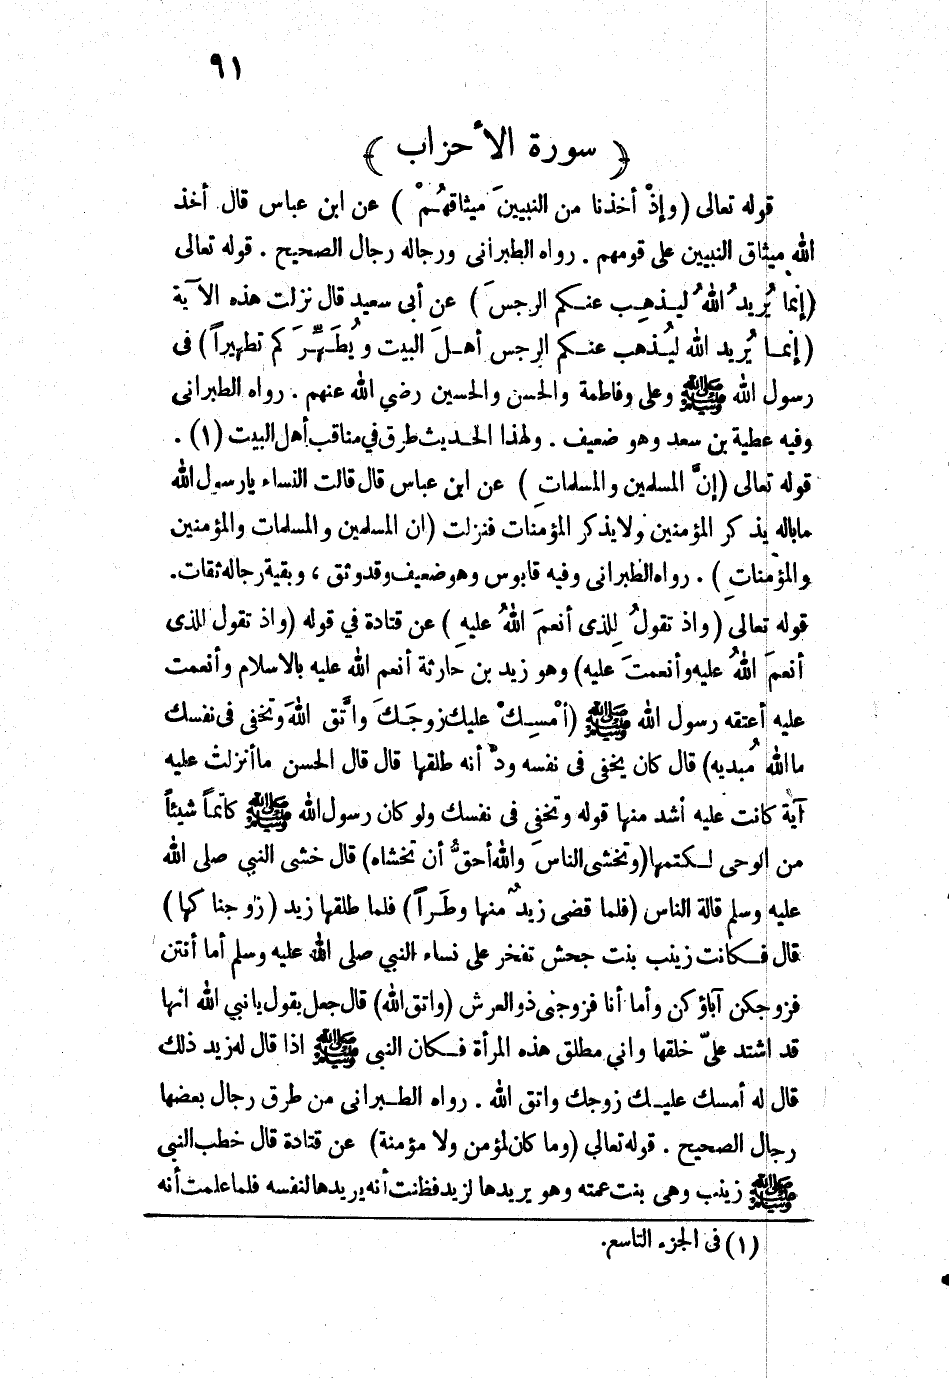 ٩١
﴿ سورة الأحزاب ﴾
قوله تعالى (وإذْ أخذنا من النبيينَ ميثاقهُمْ ) عن ابن عباس قال أخذ
الله ميثاق النبيين على قومهم . رواه الطبرانى ورجاله رجال الصحيح . قوله تعالى
(إنما يُريدُ اللهُ ليذهِب عنكم الرجسَ ) عن أبى سعيد قال نزلت هذه الآية
(إنما يُريد الله ليُذهب عنكم الرجس أهلَ البيت ويُطَهِّرَ كم تطهيراً) فى
رسول الله ﷺ وعلى وفاطمة والحسن والحسين رضي الله عنهم . رواه الطبرانى
وفيه عطية بن سعد وهو ضعيف . ولهذا الحديث طرق في مناقب أهل البيت (١) .
قوله تعالى (إنَّ المسلمين والمسلماتِ ) عن ابن عباس قال قالت النساء يارسول الله
ماباله يذكر المؤمنين ولا يذكر المؤمنات فنزلت (ان المسلمين والمسلمات والمؤمنين
والمؤمناتِ ) . رواه الطبرانى وفيه قابوس وهو ضعيف وقد وثق ، وبقية رجاله ثقات.
قوله تعالى (واذ تقولُ للذى أنعمَ اللهُ عليهِ ) عن قتادة في قوله (واذ تقول للذى
أنعمَ اللهُ عليه وأنعمتَ عليه) وهو زيد بن حارثة أنعم الله عليه بالاسلام وأنعمت
عليه أعتقه رسول الله ﷺ (أمْسِكْ عليك زوجَكَ واتَّق اللهَ وتخفى فى نفسك
ما اللهُ مُبديه) قال كان يخفى فى نفسه ودّ أنه طلقها قال قال الحسن ماأنزلت عليه
آية كانت عليه أشد منها قوله وتخفى فى نفسك ولو كان رسول الله ﷺ كاتماً شيئاً
من الوحى لكتمها (وتخشى الناسَ واللهُ أحقُّ أن تخشاه) قال خشى النبي صلى الله
عليه وسلم قالة الناس (فلما قضى زيدٌ منها وطَراً) فلما طلقها زيد (زوجناكها)
قال فكانت زينب بنت جحش تفخر على نساء النبي صلى الله عليه وسلم أما أنتن
فزوجكن آباؤكن وأما أنا فزوجنى ذو العرش (واتق الله) قال جعل يقول يانبي الله انها
قد اشتد علىّ خلقها واني مطلق هذه المرأة فكان النبى ﷺ اذا قال له زيد ذلك
قال له أمسك عليك زوجك واتق الله . رواه الطبرانى من طرق رجال بعضها
رجال الصحيح . قوله تعالي (وما كان لمؤمن ولا مؤمنة) عن قتادة قال خطب النبى
ﷺ زينب وهى بنت عمته وهو يريدها لزيد فظنت أنه يريدها لنفسه فلما علمت أنه
(١) فى الجزء التاسع.